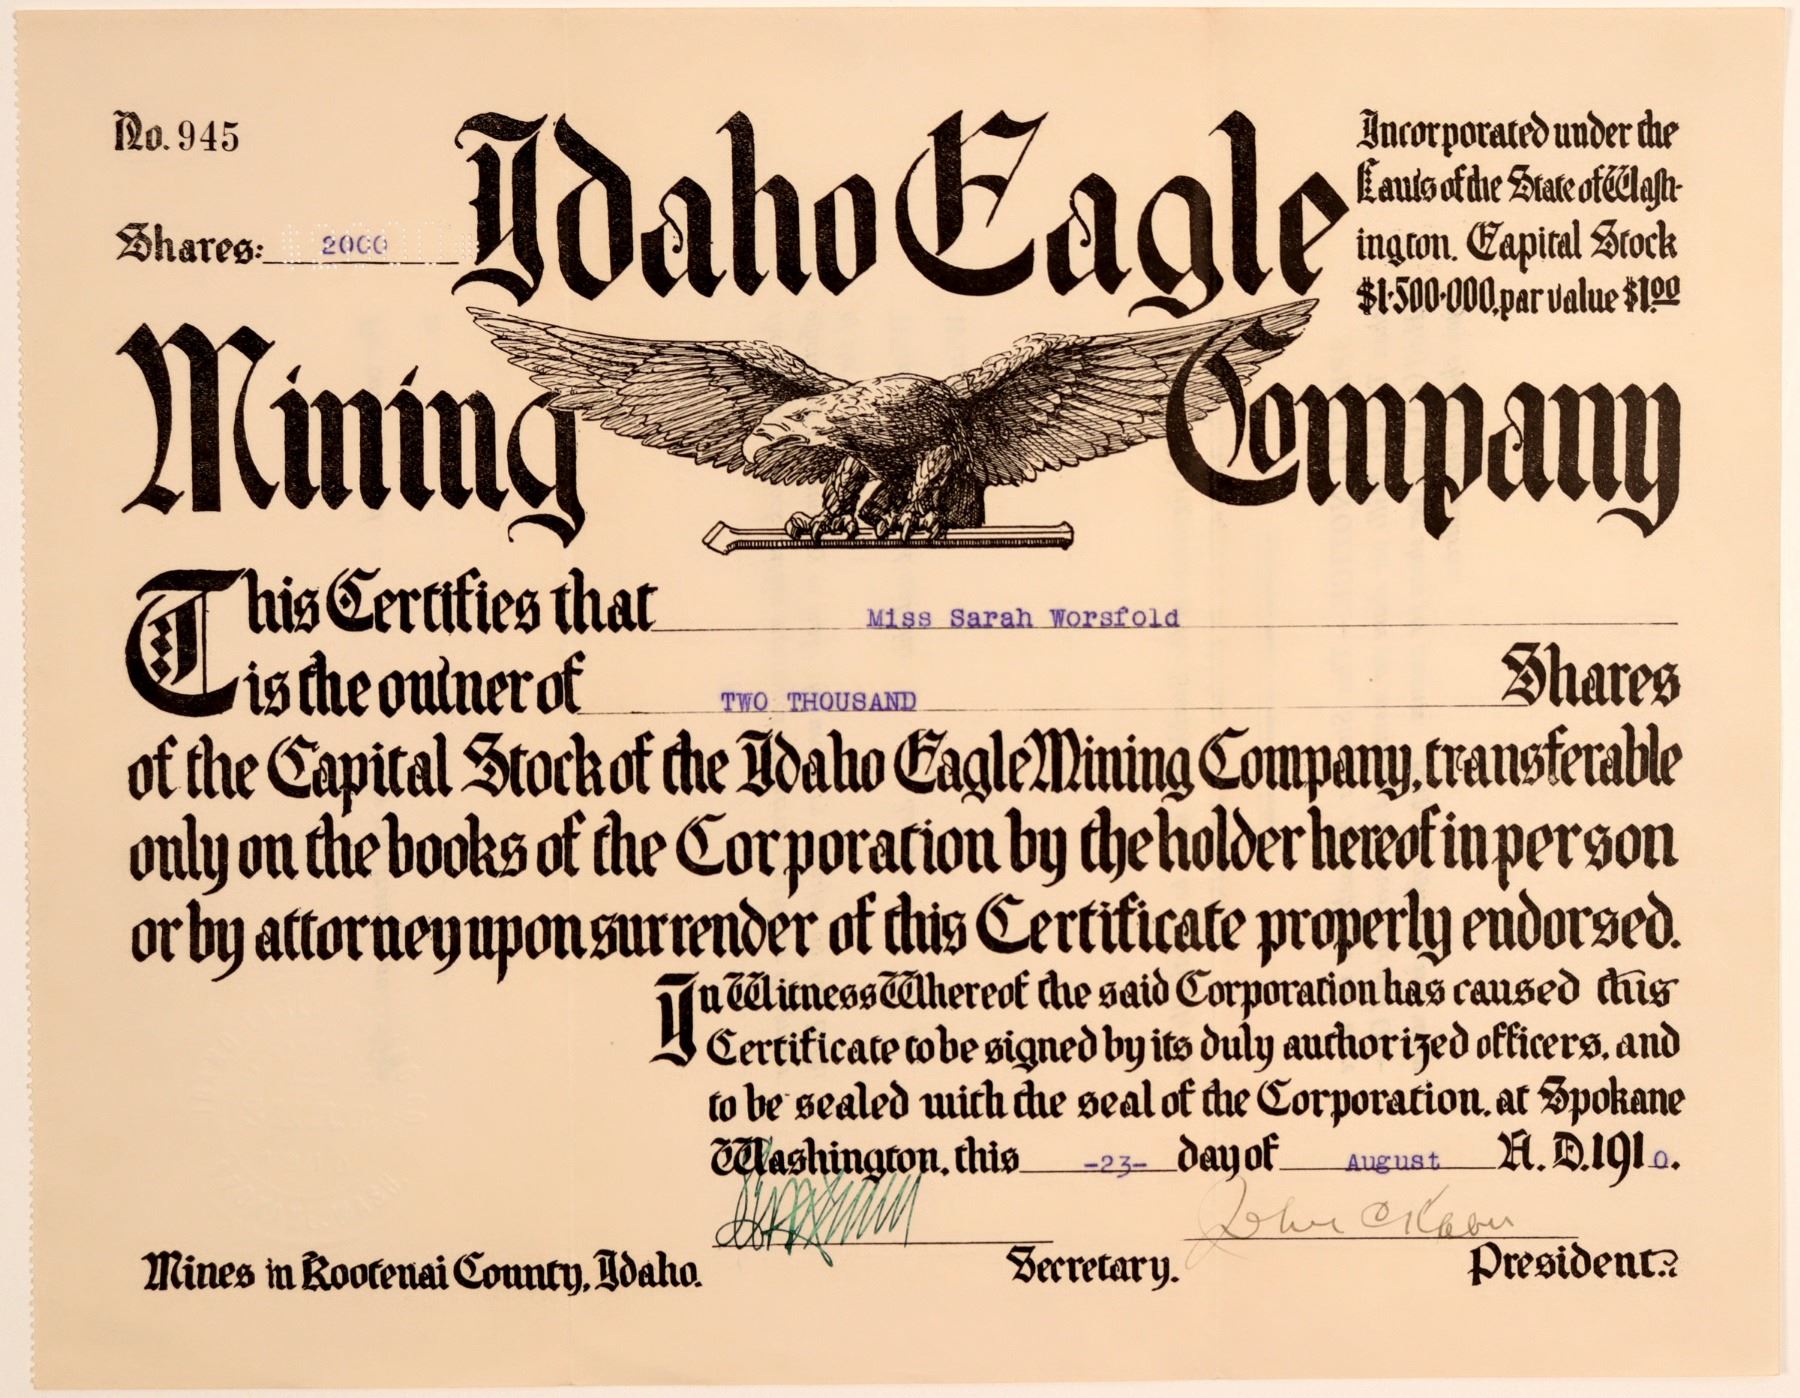 No. 945
Shares: 2000
Idaho Eagle
Incorporated under the
Laws of the State of Wash-
ington. Capital Stock
$1·500·000, par value $1.00
Mining Company
This Certifies that Miss Sarah Worsfold
is the owner of TWO THOUSAND Shares
of the Capital Stock of the Idaho Eagle Mining Company, transferable
only on the books of the Corporation by the holder hereof in person
or by attorney upon surrender of this Certificate properly endorsed.
In Witness Whereof the said Corporation has caused this
Certificate to be signed by its duly authorized officers, and
to be sealed with the seal of the Corporation, at Spokane
Washington, this -23- day of August A. D. 1910.
John C
Mines in Kootenai County, Idaho. Secretary. President.